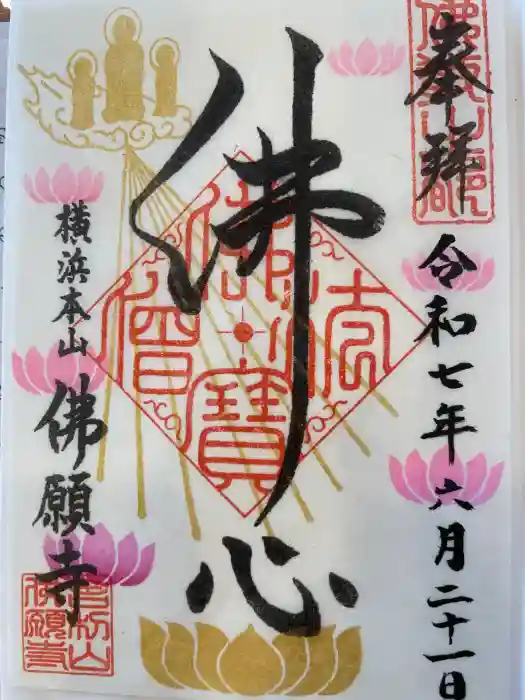 奉拝
令和七年六月二十一日
佛心
佛法僧寳
横浜本山
佛願寺